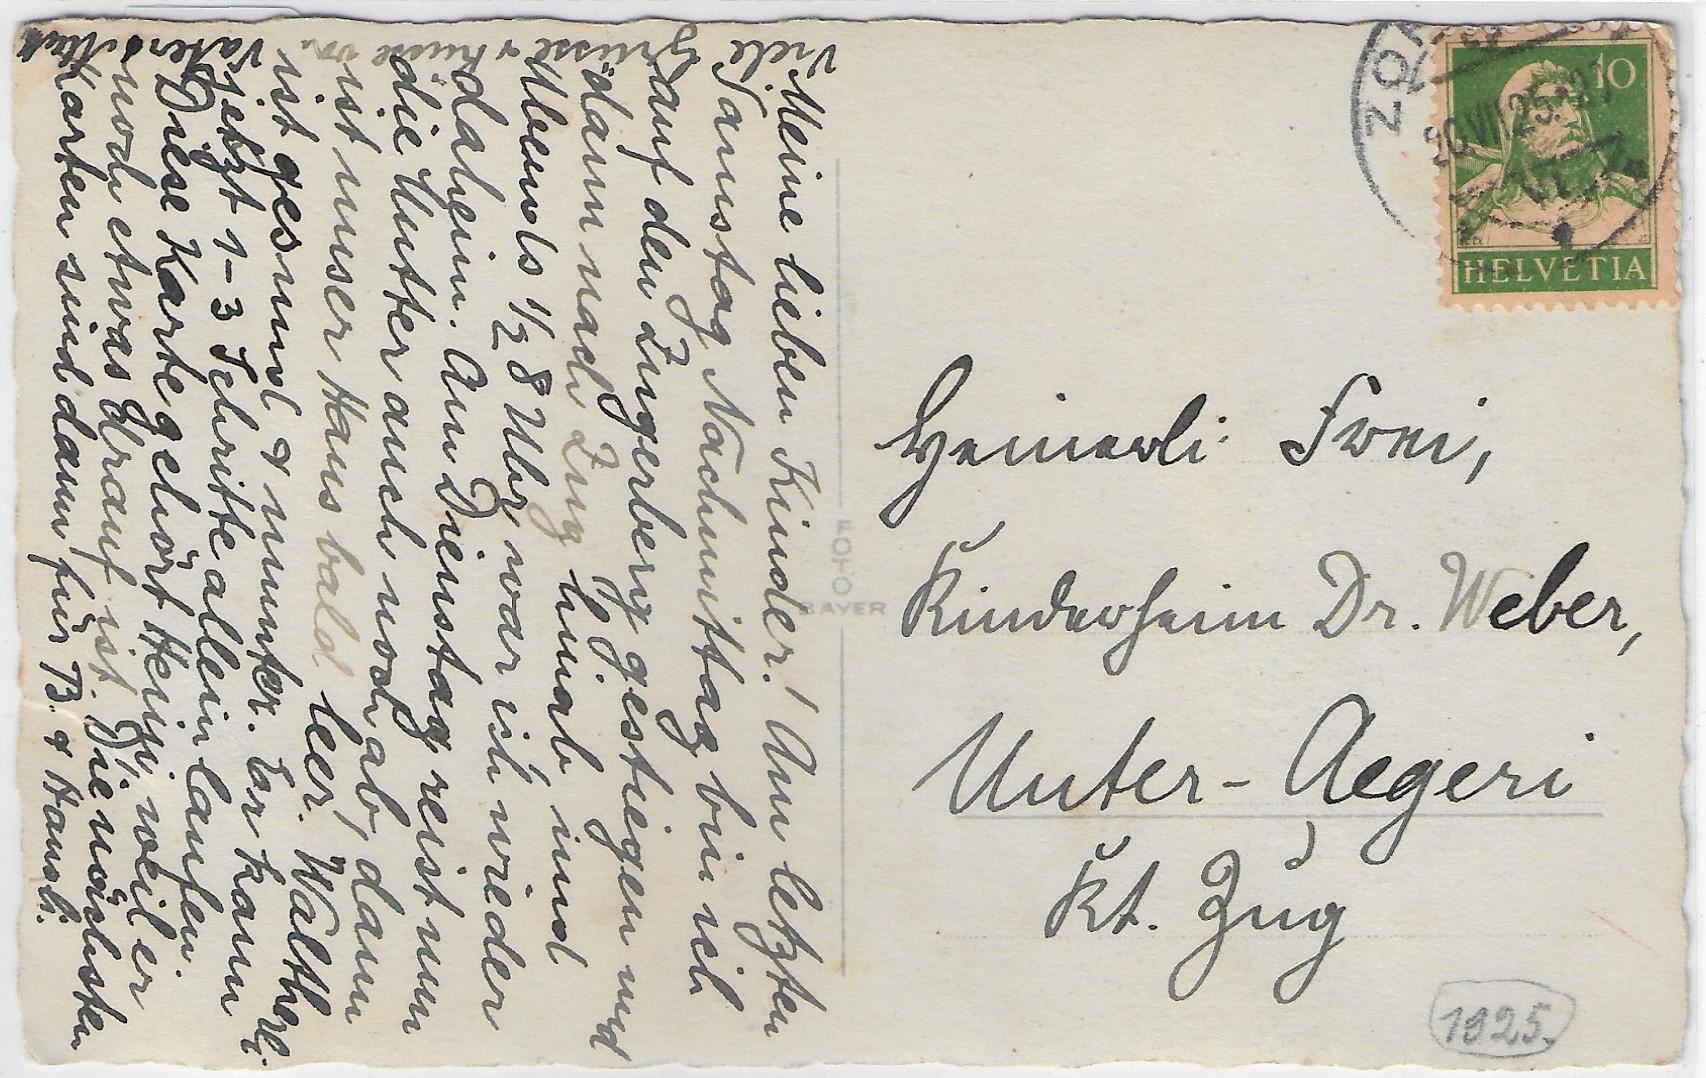 Meine lieben Kinder! Am letzten
Samstag Nachmittag bin ich
auf den Zugerberg gestiegen und
dann nach Zug hinab, und
Abends 1/2 8 Uhr war ich wieder
daheim. Am Dienstag reist nun
die Mutter auch noch ab, dann
ist unser Haus bald leer. Waltherli
ist gesund & munter. Er kann
jetzt 1-3 Schritte allein laufen.
Diese Karte gehört Heini, weil er
noch etwas drauf ist. Die nächsten
Karten sind dann für B. & Hansli.
Viele
Grüsse & Küsse von
Vater &
Heinerli Frei,
Kinderheim Dr. Weber,
Unter-Aegeri
Kt. Zug
FOTO
BAYER
10
HELVETIA
1925.